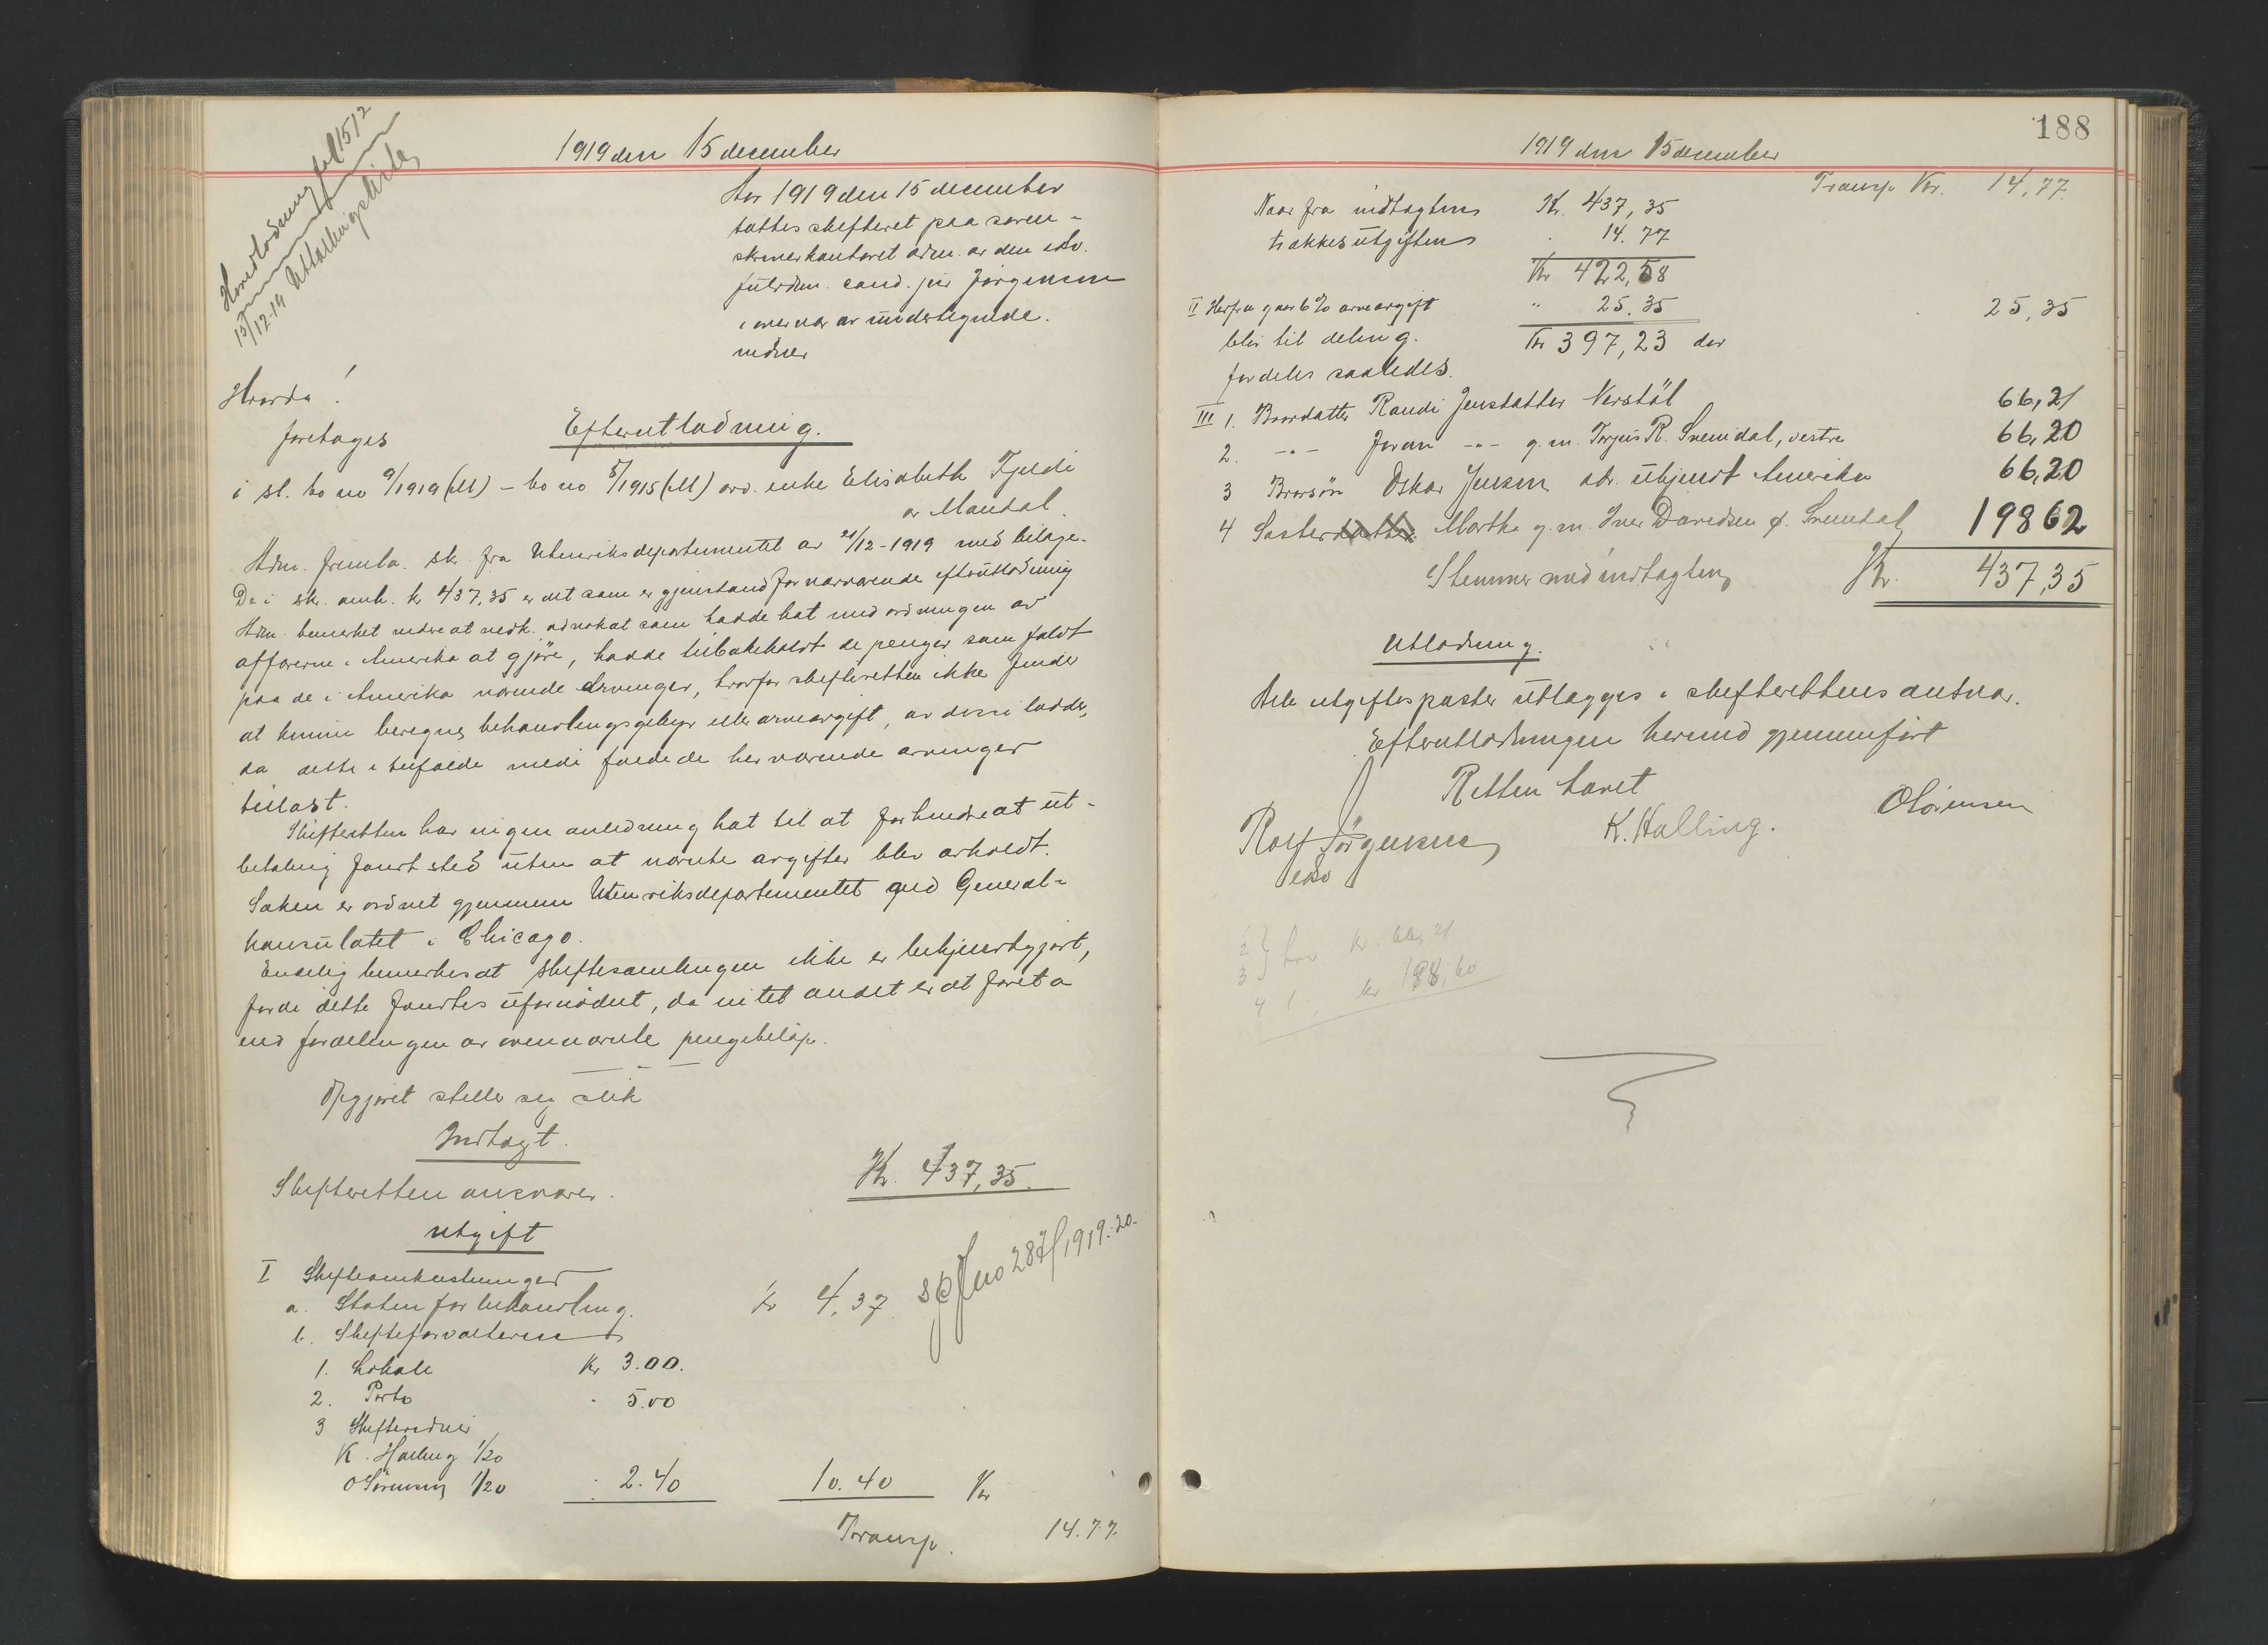 Hovedlodning fol 1512
15/12-19 Uttællingsliste
1919 den 15 december
Aar 1919 den 15 december
sattes skifteret paa soren-
skriverkontoret adm. av den edsv.
fuldm. cand. jur Jørgensen
i overvær av undertegnede
vidner
Hvorda!
foretoges Efterutlodning.
i sl. bo no 9/1919 (M) – bo no 5/1915 (M) avd. enke Elisabeth Fjeldi
av Mandal.
Adm. fremla. skr. fra Utenriksdepartementet av 21/12-1919 med bilage.
De i skr. omh. kr 437,35 er det som er gjenstand for nærværende efterutlodning
Adm. bemerket videre at vedk. advokat som hadde hat med ordningen av
affærerne i Amerika at gjöre, hadde tilbakeholdt de penger som faldt
paa de i Amerika værende arvinger, hvorfor skifteretten ikke finder
at kunne beregne behandlingsgebyr eller arveavgift, av disse lodder,
da dette i tilfælde vilde falde de herværende arvinger
tillast.
Skifteretten har ingen anledning hat til at forhindre at ut-
betaling fandt sted uten at nævnte avgifter blev avholdt.
Saken er ordnet gjennem Utenriksdepartementet ved General-
konsulatet i Chicago.
Endelig bemerkes at skiftesamlingen ikke er bekjendtgjort,
fordi dette fandtes ufornödent, da intet andet er at foreta
end fordelingen av ovennævnte pengebelöp.
Opgjöret stiller sig slik
Indtægt.
Skifteretten ansvarer. Kr. 437,35.
Utgift
I Skifteomkostninger
a. Staten for behandling. Kr 4,37 Spf no 287/1919-20.
b. Skifteforvalteren
1. Lokale Kr 3.00.
2. Porto " 5.00
3 Skiftevidner
K. Halling 1/20
O Sörensen 1/20 " 2.40 10.40 Kr
Transp. 14.77.
188
1919 den 15 december
Transp. Kr. 14,77
Naar fra indtægten Kr. 437,35
trækkes utgiften " 14.77
Kr 422,58
II Herfra gaar 6% arveavgift " 25.35 25,35
blir til deling. Kr 397,23 der
fordeles saaledes.
III 1. Brordatter Randi Jensdatter Verstöl 66,21
2. -"- Joran -"- g.m. Torjus R. Sveindal, vestre 66,20
3 Brorsön Oskar Jensen adr. ukjendt Amerika 66,20
4 Sösterdatter Marthe g.m. Iver Davidsen ö. Sveindal 198 62
Stemmer med indtægten Kr. 437,35
Utlodning.
Hele utgiftsposter utlægges i skifterettens ansvar.
Efterutlodningen hermed gjennemfört
Retten hævet
Rolf Jörgensen K. Halling. O Sörensen
edsv
2
3 } hver kr 66,21
4 kr 188,60